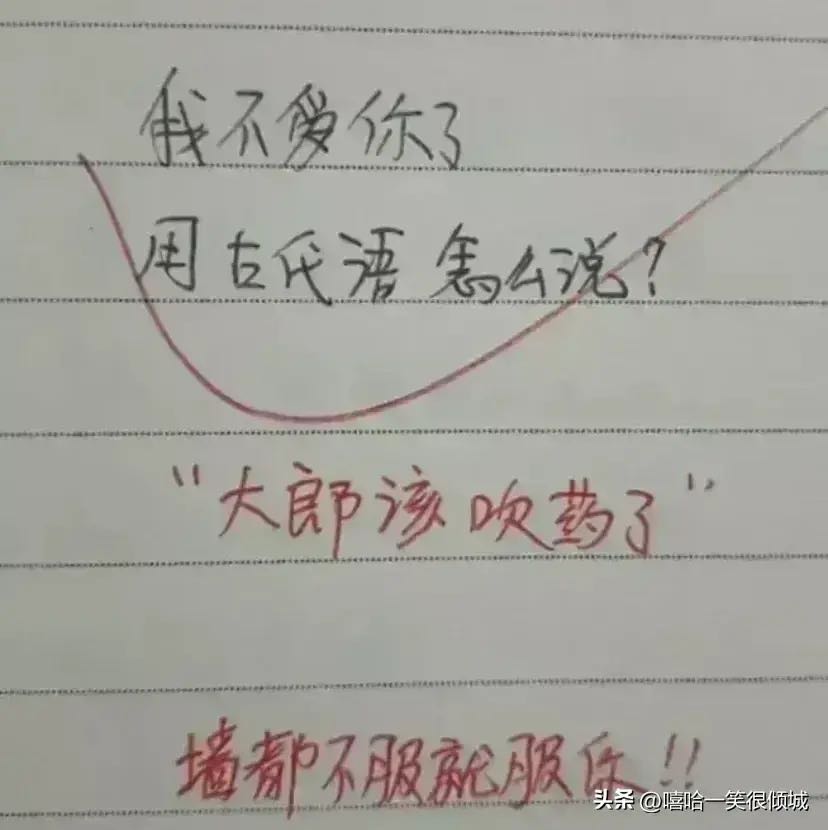 我不爱你了
用古氏语怎么说？
“大郎该吹药了”
墙都不服就服你!!
头条 @嘻哈一笑很倾城